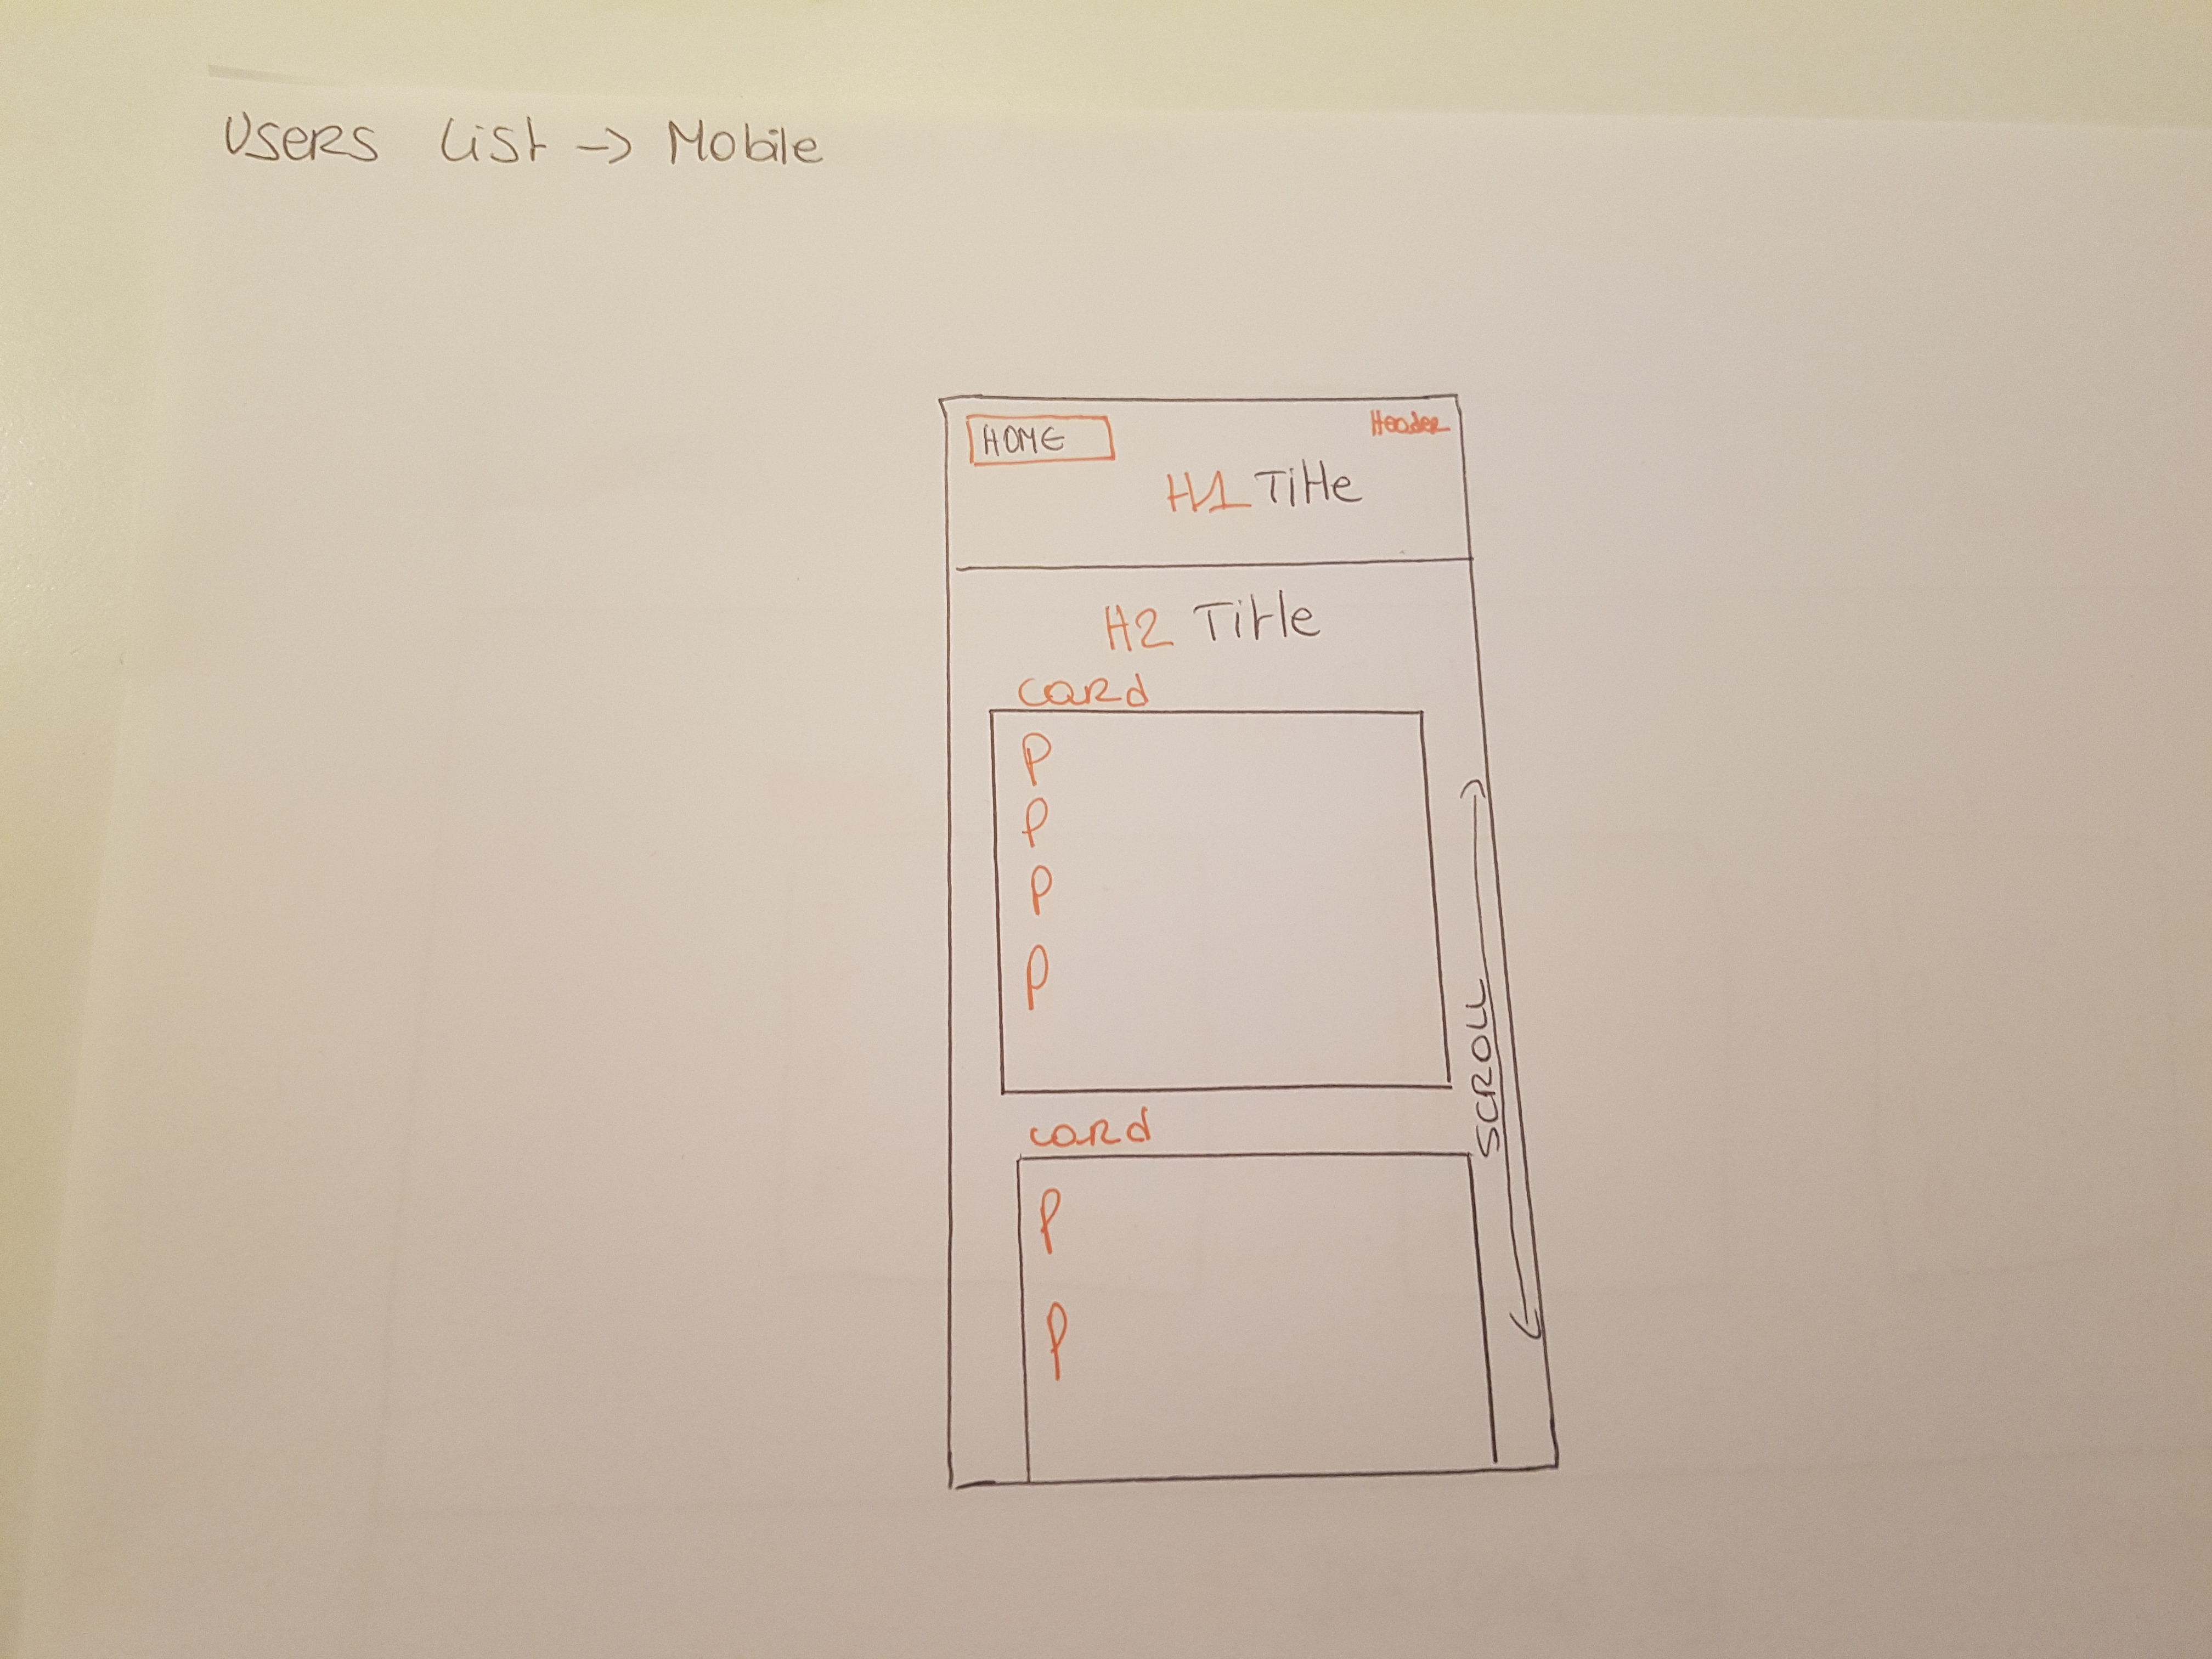 Users List -> Mobile
HOME
Header
H1 Title
H2 Title
card
P
P
P
P
SCROLL
card
P
P